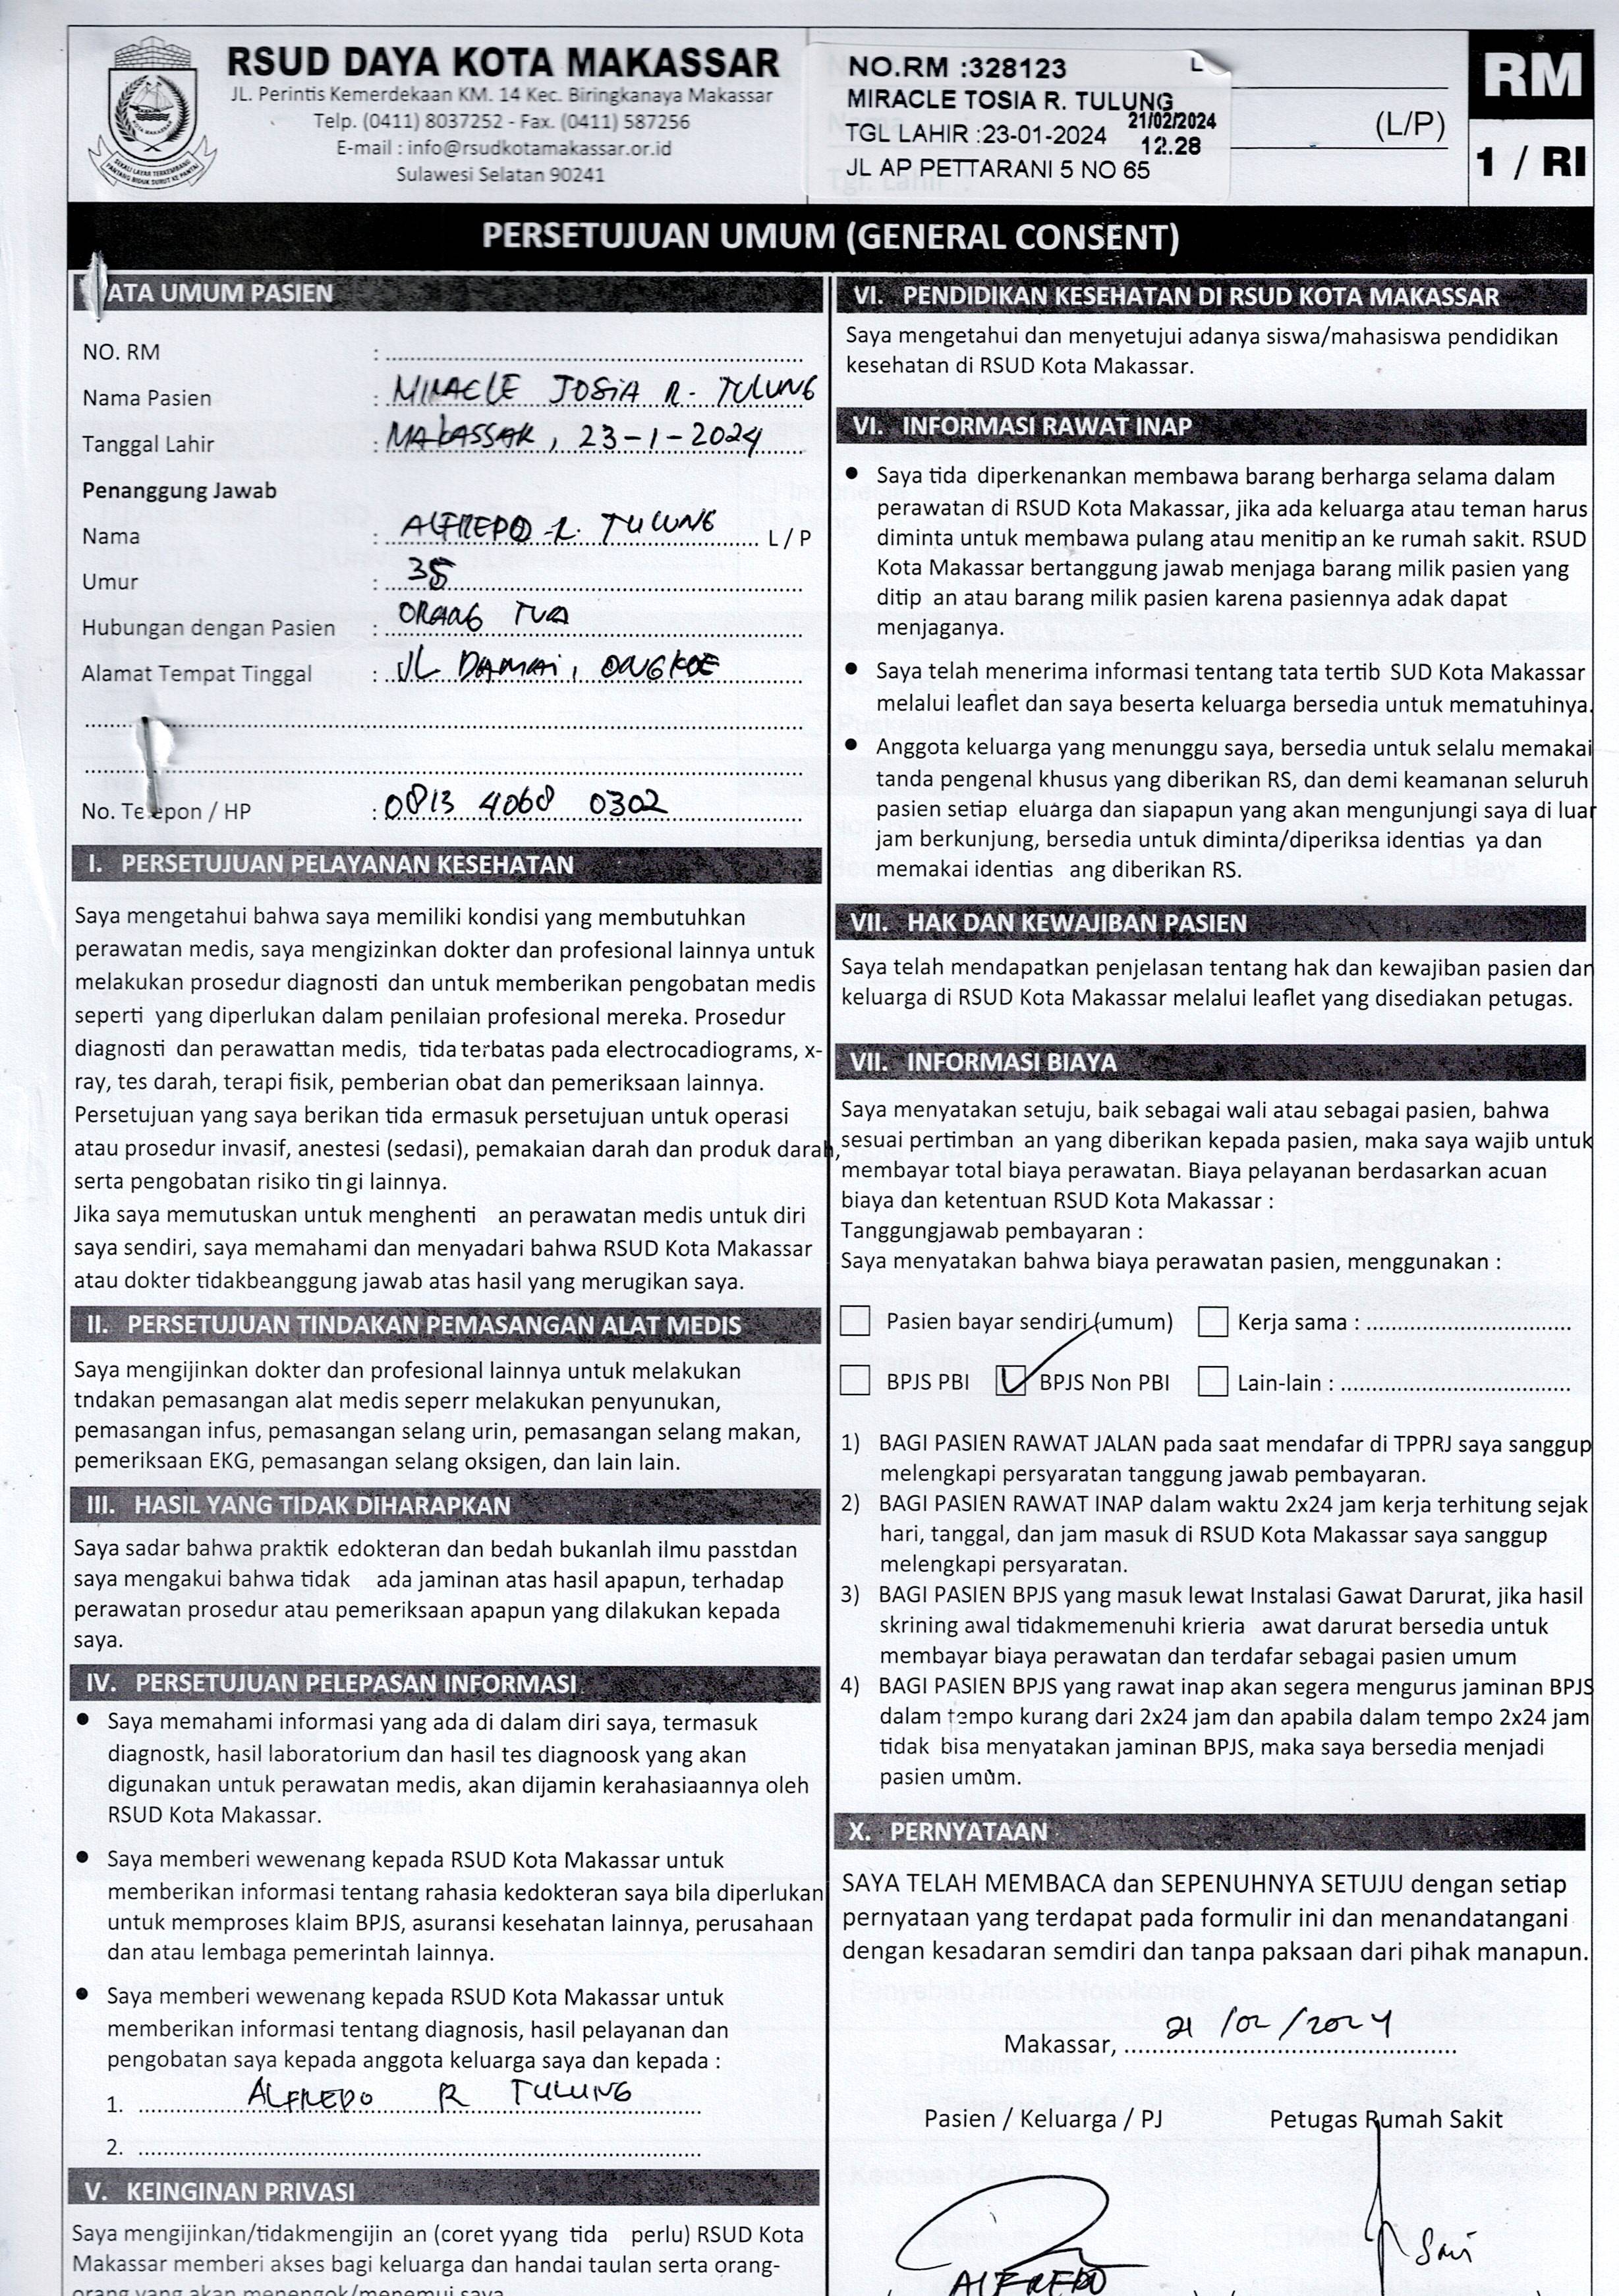 RSUD DAYA KOTA MAKASSAR
JL. Perintis Kemerdekaan KM. 14 Kec. Biringkanaya Makassar
Telp. (0411) 8037252 - Fax. (0411) 587256
E-mail : info@rsudkotamakassar.or.id
Sulawesi Selatan 90241
NO.RM :328123 L
MIRACLE TOSIA R. TULUNG
TGL LAHIR :23-01-2024 21/02/2024
12.28
JL AP PETTARANI 5 NO 65
(L/P)
RM
1 / RI
PERSETUJUAN UMUM (GENERAL CONSENT)
ATA UMUM PASIEN
NO. RM :
Nama Pasien : MIRACLE JOSIA R. TULUNG
Tanggal Lahir : MAKASSAR, 23-1-2024
Penanggung Jawab
Nama : ALFREDO R. TULUNG L / P
Umur : 35
Hubungan dengan Pasien : ORANG TUA
Alamat Tempat Tinggal : JL DAMAI, ONGKOE
No. Telepon / HP : 0813 4068 0302
I. PERSETUJUAN PELAYANAN KESEHATAN
Saya mengetahui bahwa saya memiliki kondisi yang membutuhkan
perawatan medis, saya mengizinkan dokter dan profesional lainnya untuk
melakukan prosedur diagnosti dan untuk memberikan pengobatan medis
seperti yang diperlukan dalam penilaian profesional mereka. Prosedur
diagnosti dan perawattan medis, tida terbatas pada electrocadiograms, x-
ray, tes darah, terapi fisik, pemberian obat dan pemeriksaan lainnya.
Persetujuan yang saya berikan tida ermasuk persetujuan untuk operasi
atau prosedur invasif, anestesi (sedasi), pemakaian darah dan produk darah,
serta pengobatan risiko tin gi lainnya.
Jika saya memutuskan untuk menghenti an perawatan medis untuk diri
saya sendiri, saya memahami dan menyadari bahwa RSUD Kota Makassar
atau dokter tidakbeanggung jawab atas hasil yang merugikan saya.
II. PERSETUJUAN TINDAKAN PEMASANGAN ALAT MEDIS
Saya mengijinkan dokter dan profesional lainnya untuk melakukan
tndakan pemasangan alat medis seperr melakukan penyunukan,
pemasangan infus, pemasangan selang urin, pemasangan selang makan,
pemeriksaan EKG, pemasangan selang oksigen, dan lain lain.
III. HASIL YANG TIDAK DIHARAPKAN
Saya sadar bahwa praktik edokteran dan bedah bukanlah ilmu passtdan
saya mengakui bahwa tidak ada jaminan atas hasil apapun, terhadap
perawatan prosedur atau pemeriksaan apapun yang dilakukan kepada
saya.
IV. PERSETUJUAN PELEPASAN INFORMASI
● Saya memahami informasi yang ada di dalam diri saya, termasuk
diagnostk, hasil laboratorium dan hasil tes diagnoosk yang akan
digunakan untuk perawatan medis, akan dijamin kerahasiaannya oleh
RSUD Kota Makassar.
● Saya memberi wewenang kepada RSUD Kota Makassar untuk
memberikan informasi tentang rahasia kedokteran saya bila diperlukan
untuk memproses klaim BPJS, asuransi kesehatan lainnya, perusahaan
dan atau lembaga pemerintah lainnya.
● Saya memberi wewenang kepada RSUD Kota Makassar untuk
memberikan informasi tentang diagnosis, hasil pelayanan dan
pengobatan saya kepada anggota keluarga saya dan kepada :
1. ALFREDO R TULUNG
2.
V. KEINGINAN PRIVASI
Saya mengijinkan/tidakmengijin an (coret yyang tida perlu) RSUD Kota
Makassar memberi akses bagi keluarga dan handai taulan serta orang-
orang yang akan menengok/menemui saya
VI. PENDIDIKAN KESEHATAN DI RSUD KOTA MAKASSAR
Saya mengetahui dan menyetujui adanya siswa/mahasiswa pendidikan
kesehatan di RSUD Kota Makassar.
VI. INFORMASI RAWAT INAP
● Saya tida diperkenankan membawa barang berharga selama dalam
perawatan di RSUD Kota Makassar, jika ada keluarga atau teman harus
diminta untuk membawa pulang atau menitip an ke rumah sakit. RSUD
Kota Makassar bertanggung jawab menjaga barang milik pasien yang
ditip an atau barang milik pasien karena pasiennya adak dapat
menjaganya.
● Saya telah menerima informasi tentang tata tertib SUD Kota Makassar
melalui leaflet dan saya beserta keluarga bersedia untuk mematuhinya.
● Anggota keluarga yang menunggu saya, bersedia untuk selalu memakai
tanda pengenal khusus yang diberikan RS, dan demi keamanan seluruh
pasien setiap eluarga dan siapapun yang akan mengunjungi saya di luar
jam berkunjung, bersedia untuk diminta/diperiksa identias ya dan
memakai identias ang diberikan RS.
VII. HAK DAN KEWAJIBAN PASIEN
Saya telah mendapatkan penjelasan tentang hak dan kewajiban pasien dan
keluarga di RSUD Kota Makassar melalui leaflet yang disediakan petugas.
VII. INFORMASI BIAYA
Saya menyatakan setuju, baik sebagai wali atau sebagai pasien, bahwa
sesuai pertimban an yang diberikan kepada pasien, maka saya wajib untuk
membayar total biaya perawatan. Biaya pelayanan berdasarkan acuan
biaya dan ketentuan RSUD Kota Makassar :
Tanggungjawab pembayaran :
Saya menyatakan bahwa biaya perawatan pasien, menggunakan :
Pasien bayar sendiri (umum) Kerja sama :
BPJS PBI BPJS Non PBI Lain-lain :
1) BAGI PASIEN RAWAT JALAN pada saat mendafar di TPPRJ saya sanggup
melengkapi persyaratan tanggung jawab pembayaran.
2) BAGI PASIEN RAWAT INAP dalam waktu 2x24 jam kerja terhitung sejak
hari, tanggal, dan jam masuk di RSUD Kota Makassar saya sanggup
melengkapi persyaratan.
3) BAGI PASIEN BPJS yang masuk lewat Instalasi Gawat Darurat, jika hasil
skrining awal tidakmemenuhi krieria awat darurat bersedia untuk
membayar biaya perawatan dan terdafar sebagai pasien umum
4) BAGI PASIEN BPJS yang rawat inap akan segera mengurus jaminan BPJS
dalam tempo kurang dari 2x24 jam dan apabila dalam tempo 2x24 jam
tidak bisa menyatakan jaminan BPJS, maka saya bersedia menjadi
pasien umum.
X. PERNYATAAN
SAYA TELAH MEMBACA dan SEPENUHNYA SETUJU dengan setiap
pernyataan yang terdapat pada formulir ini dan menandatangani
dengan kesadaran semdiri dan tanpa paksaan dari pihak manapun.
Makassar, 21/02/2024
Pasien / Keluarga / PJ Petugas Rumah Sakit
ALFREDO Sari